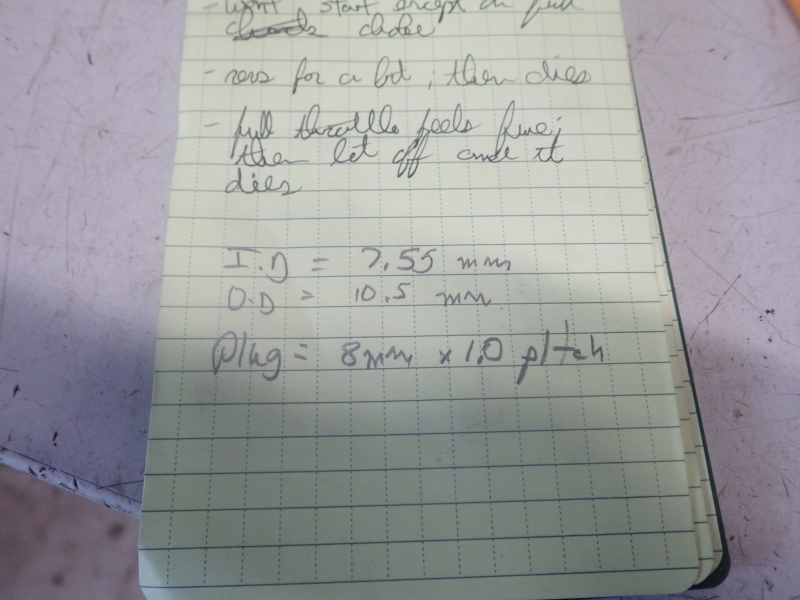 - wont start except on full
choke
- revs for a bit, then dies
- full throttle feels fine;
then let off and it
dies
I.D = 7.55 mm
O.D = 10.5 mm
Plug = 8mm x 1.0 pitch